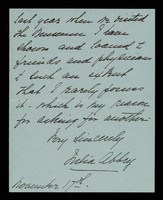 last year when we visited
the Museum I have
shown and loaned to
friends and physicians
to such an extent
that I rarely possess
it - which is my reason
for asking for another.
Very Sincerely
Abbey
November 17th.